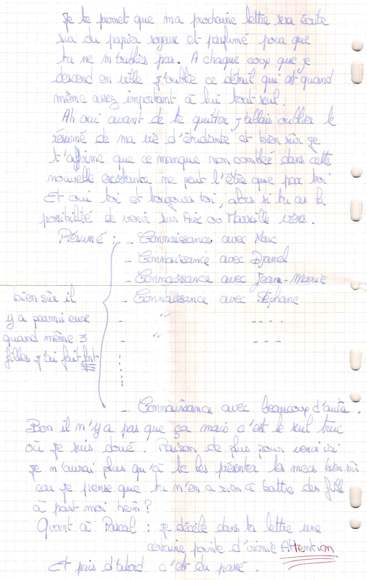 Je te promet que ma prochaine lettre sera écrite
sur du papier soyeux et parfumé pour que
tu ne m'oublies pas. A chaque coup que je
descend en ville j'oublie ce détail qui est quand
même assez important à lui tout seul.
Ah oui avant de te quitter j'allais oublier le
résumé de ma vie d'étudiante et bien sûr je
t'affirme que ce manque non comblé dans cette
nouvelle existence ne peut l'être que par toi
Et oui toi et toujours toi, alors si tu as la
possibilité de venir sur Aix ou Marseille viens.
Résumé : - Connaissance avec Marc
- Connaissance avec Djamel
- Connaissance avec Jeanne-Marie
- Connaissance avec Stéphane
bien sûr il
y a parmi eux
quand même 3
filles j'ai fait fort
- Connaissance avec beaucoup d'autre.
Bon il n'y a pas que ça mais c'est le seul truc
où je suis doué. Raison de plus pour venir ici
je n'aurai plus qu'à te les présenter les mecs bien sûr
car je pense que tu n'en a rien à battre des filles
à part moi hein ?
Quant à Pascal : je décèle dans ta lettre une
certaine pointe d'ironie Attention
Et puis d'abord c'est du passé.